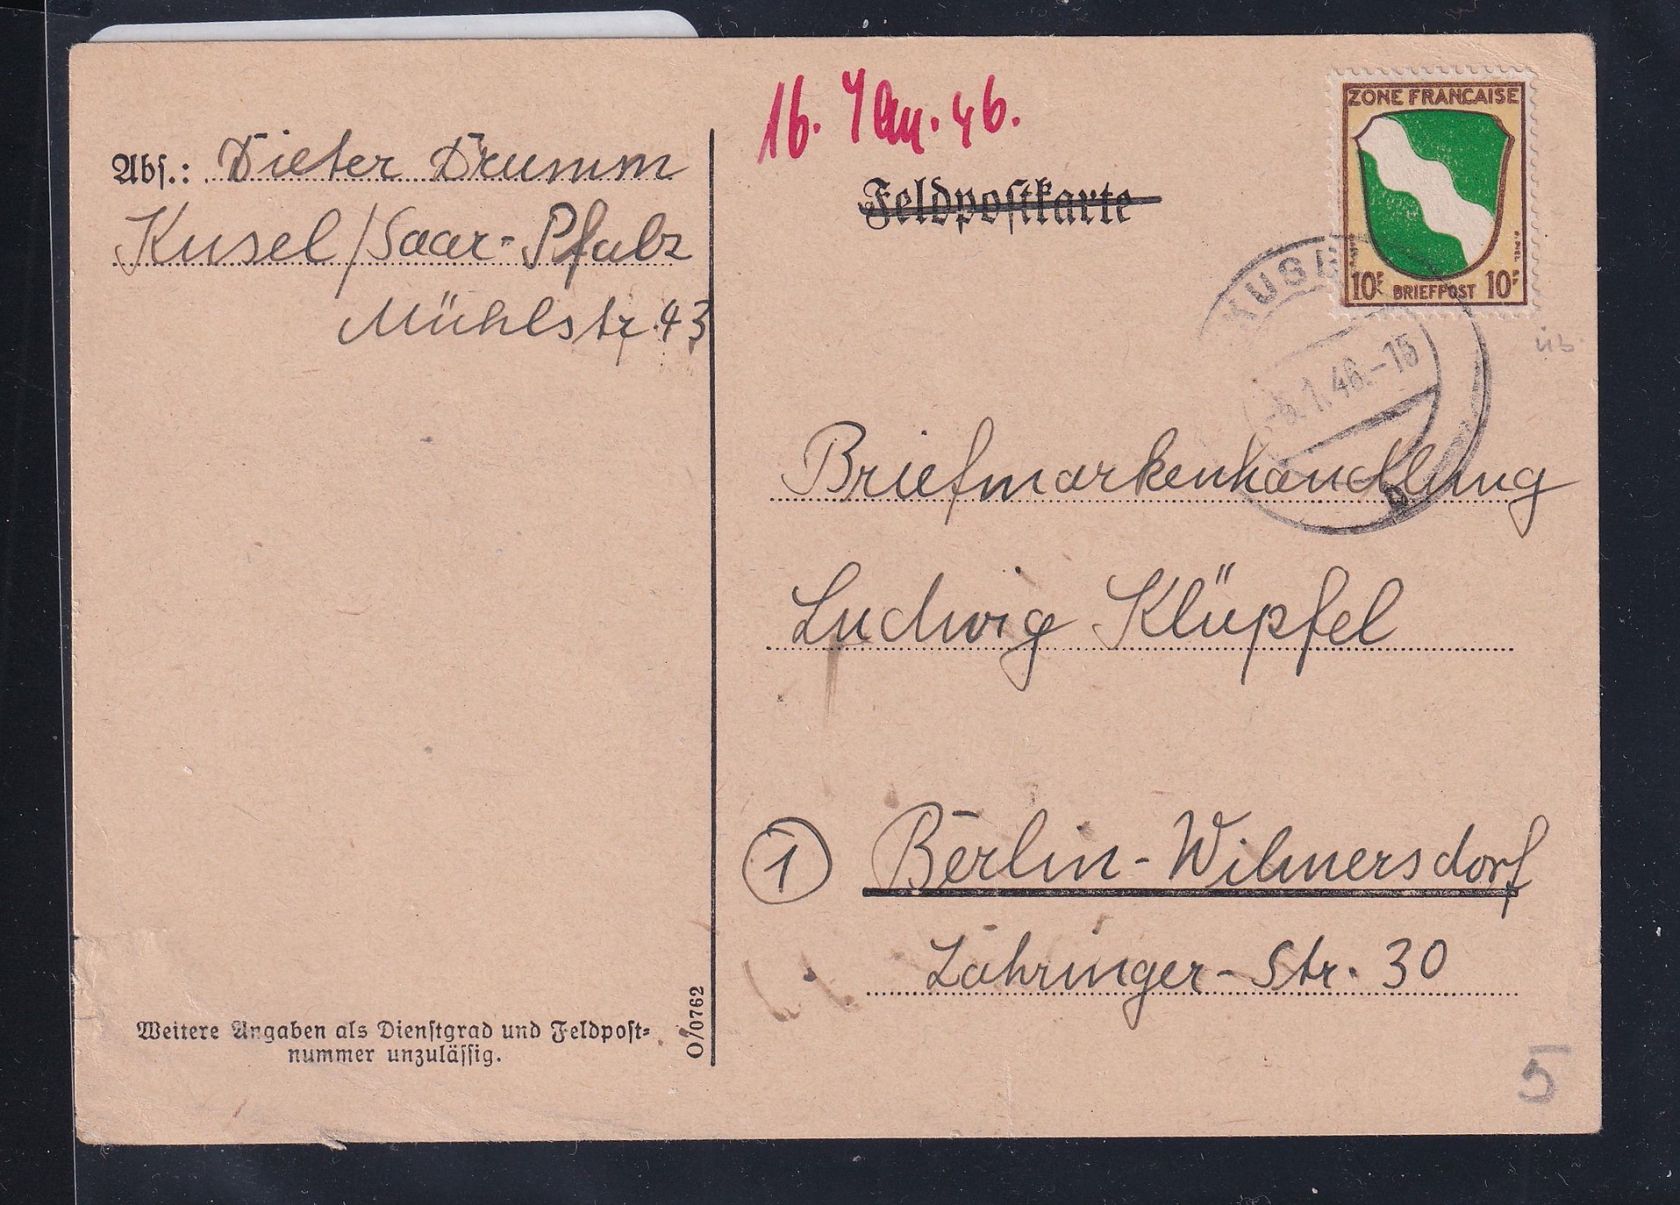 16. Jan. 46.
Abs.: Dieter Drumm
Kusel/Saar-Pfalz
Mühlstr. 43
Feldpostkarte
ZONE FRANCAISE
10F BRIEFPOST 10F
KUSEL
-5.1.46.-15
b
Briefmarkenhandlung
Ludwig Klüpfel
1 Berlin-Wilmersdorf
Zähringer-Str. 30
Weitere Angaben als Dienstgrad und Feldpost-
nummer unzulässig.
O/0762
5